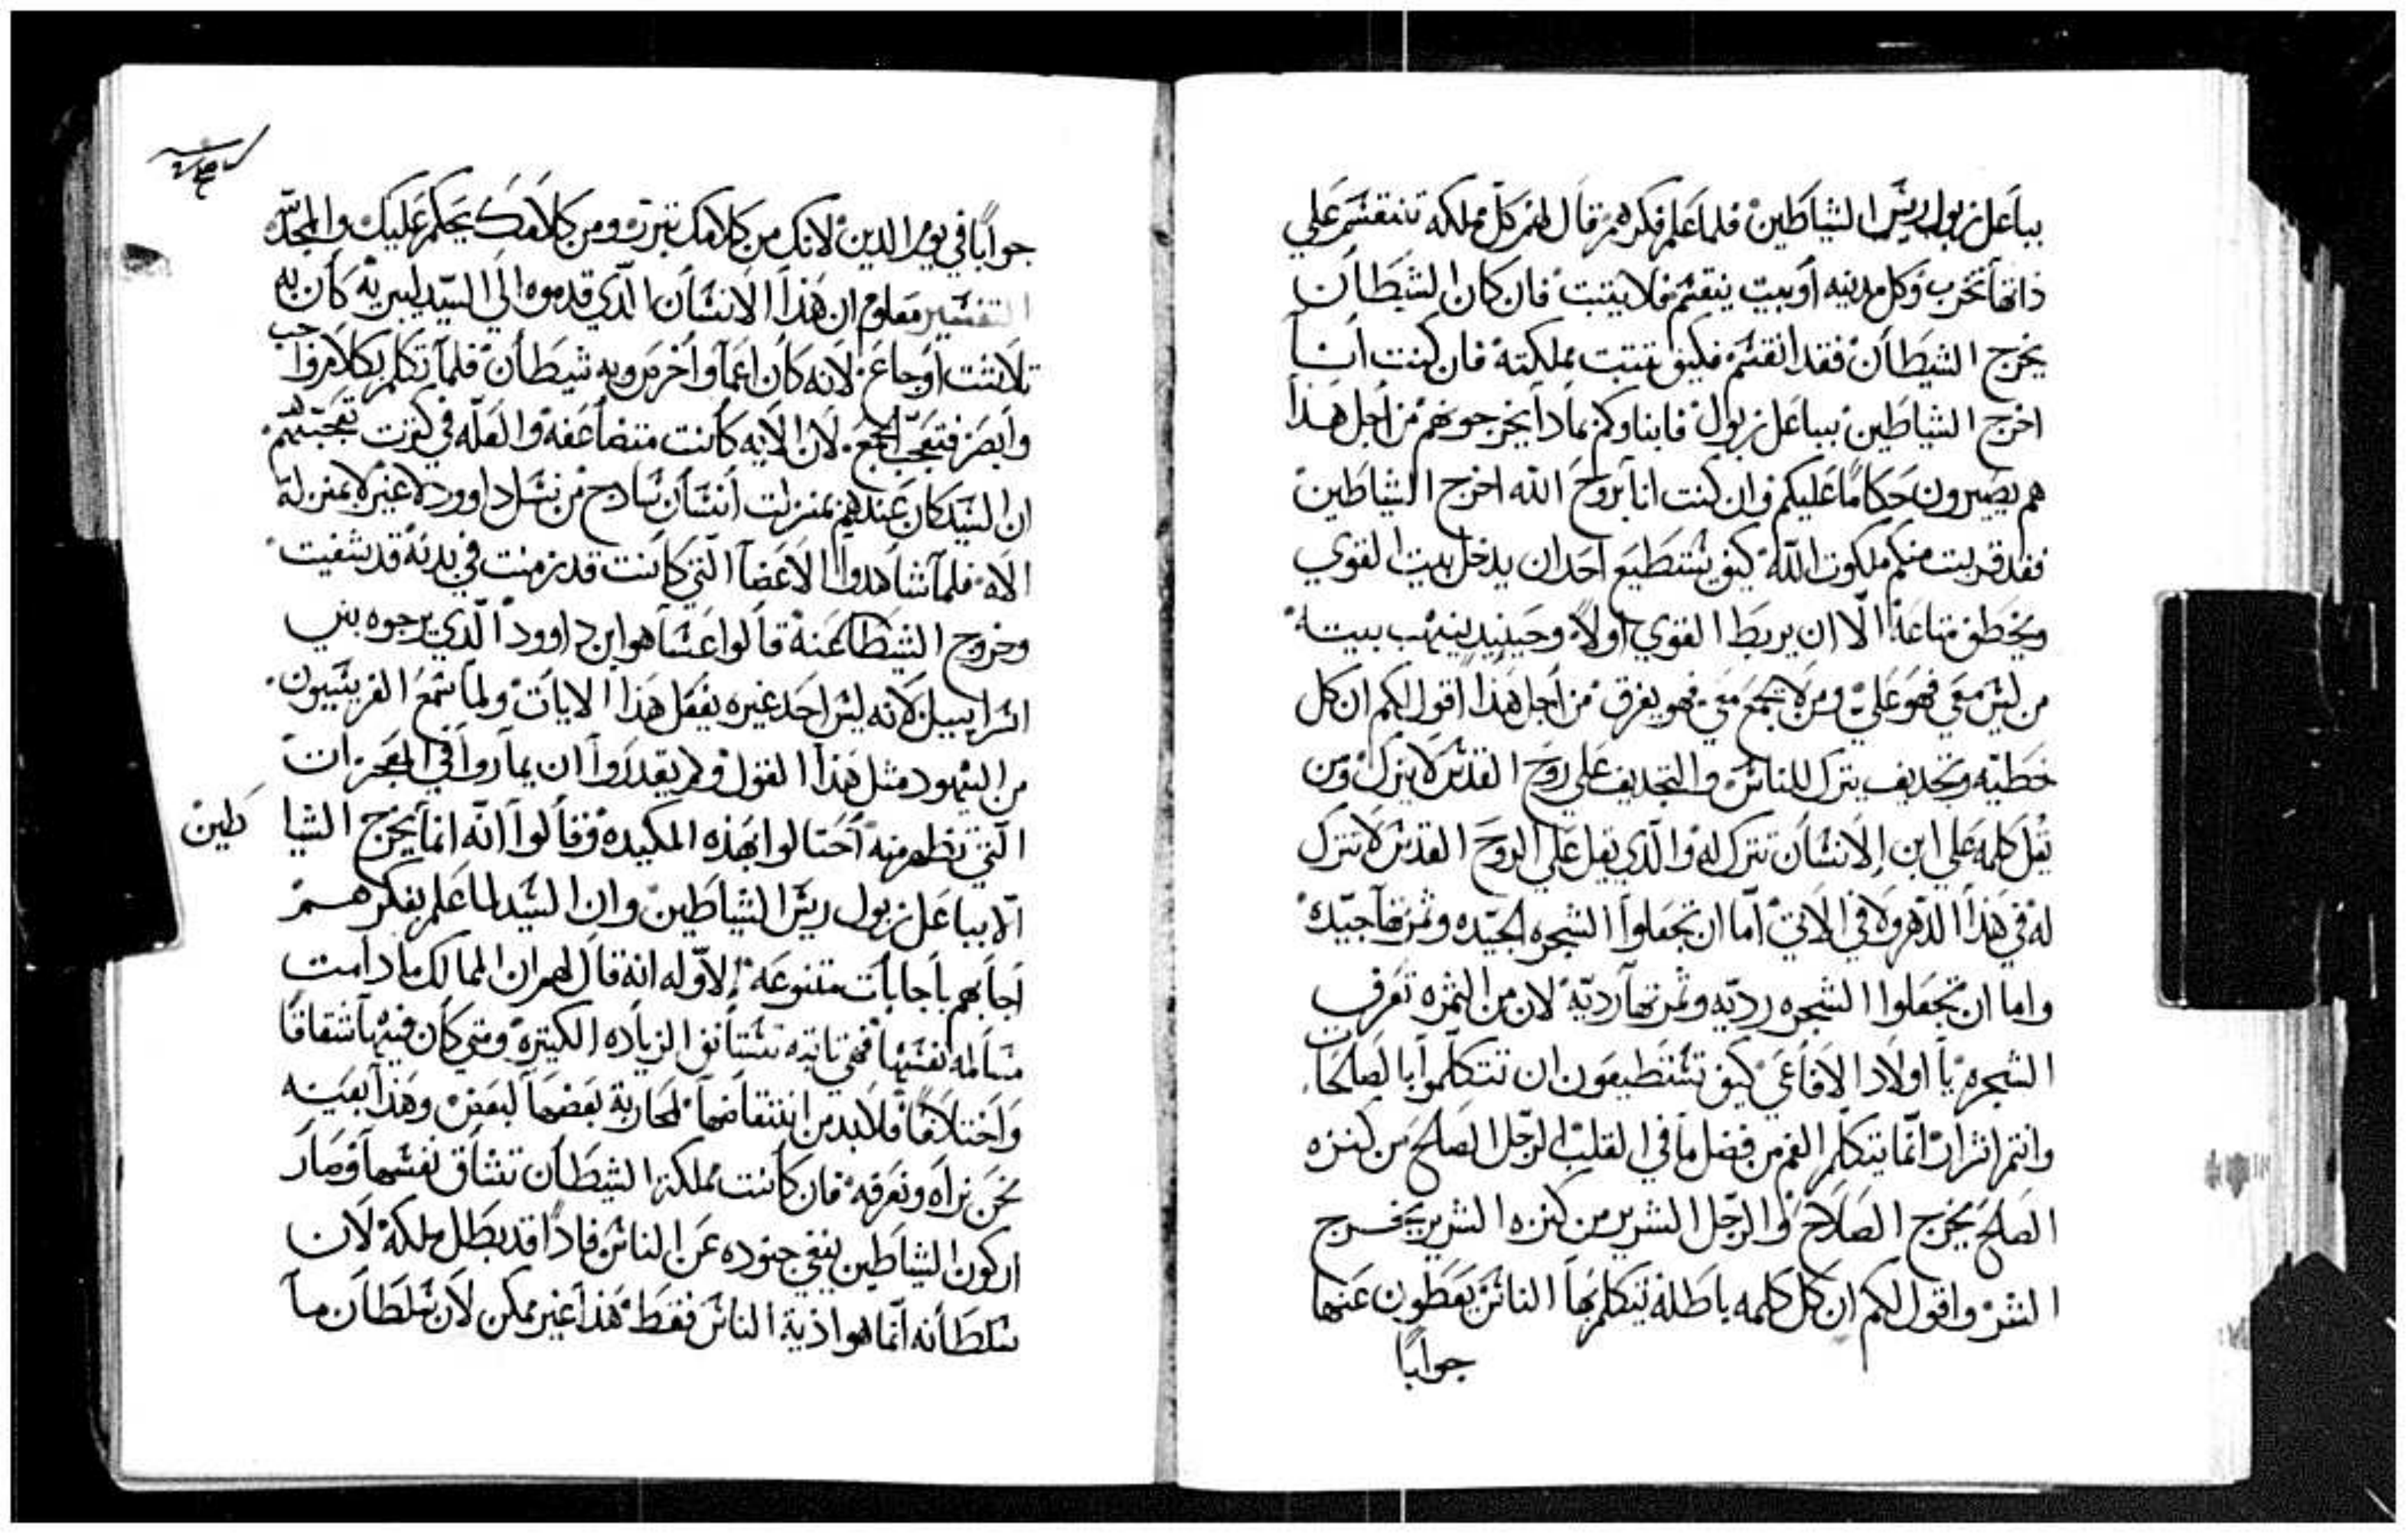 بباعل زبول ريس الشياطين فلما علم فكرهم قال لهم كل مملكه تنقسم علي
ذاتها تخرب وكل مدينه او بيت ينقسم فلا يثبت فان كان الشيطان
يخرج الشيطان فقد انقسم فكيف تثبت مملكته فان كنت انا
اخرج الشياطين بباعل زبول فابناوكم بمادا يخرجونهم من اجل هذا
هم يصيرون حكاما عليكم وان كنت انا بروح الله اخرج الشياطين
فقد قربت منكم ملكوت الله كيف يستطيع احد ان يدخل بيت القوي
ويخطف متاعه الا ان يربط القوي اولا وحينيد ينهب بيته
من ليس معي فهو علي ومن لا يجمع معي فهو يفرق من اجل هذا اقول لكم ان كل
خطيه وتجديف يترك للناس والتجديف علي روح القدس لا يترك ومن
يقل كلمه علي ابن الانسان تترك له والدي يقل علي الروح القدس لا تترك
له في هذا الدهر ولا في الاتي اما ان تجعلوا الشجره الجيده وثمرتها جيده
واما ان تجعلوا الشجره رديه وثمرتها رديه لان من الثمره تعرف
الشجره يا اولاد الافاعي كيف تستطيعون ان تتكلموا بالصالحات
وانتم اشرار انما يتكلم الفم من فضل ما في القلب الرجل الصالح من كنزه
الصالح يخرج الصلاح والرجل الشرير من كنزه الشرير يخرج
الشر واقول لكم ان كل كلمه باطله يتكلم بها الناس يعطون عنها
جوابا
جوابا في يوم الدين لانك من كلامك تتبرر ومن كلامك يحكم عليك والمجد لله
التفسير معلوم ان هذا الانسان الذي قدموه الي السيد ليبريه كان به
تلاتت اوجاع لانه كان اعما واخرس وبه شيطان فلما تكلم بكلام واجب
وابصر فتعجب الجمع لان الايه كانت متضاعفه والعله في كثرت تعجبهم
ان السيد كان عندهم بمنزلت انسان سادج من نسل داوود لا غير لا بمنزلة
الاه فلما شاهدوا الاعضا التي كانت قد زمنت في بدنه قد شفيت
وخروج الشيطان عنه قالوا عسا هو ابن داوود الدي يرجوه بني
اسراييل لانه ليس احد غيره يفعل هذا الايات ولما سمع الفريسيون
من اليهود مثل هذا القول ولم يقدروا ان يماروا في المعجزات
التي تظهر منه احتالوا بهذه المكيده وقالوا انه انما يخرج الشيا طين
الا بباعل زبول ريس الشياطين وان السيد لما علم بفكرهم
اجابهم باجابات متنوعه الاوله انه قال لهم ان الممالك ما دامت
مسالمه نفسها فهي تابته تستانف الزياده الكتيره ومتي كان فيها شقاقا
واختلافا فلا بد من انتقاضها لمحاربة بعضها لبعض وهذا بعينه
نحن نراه ونعرفه فان كانت مملكة الشيطان تشاق نفسها وصار
اركون الشياطين ينفي جنوده عن الناس فادا قد بطل ملكه لان
سلطانه انما هو اذية الناس فقط هذا غير ممكن لان سلطان ما